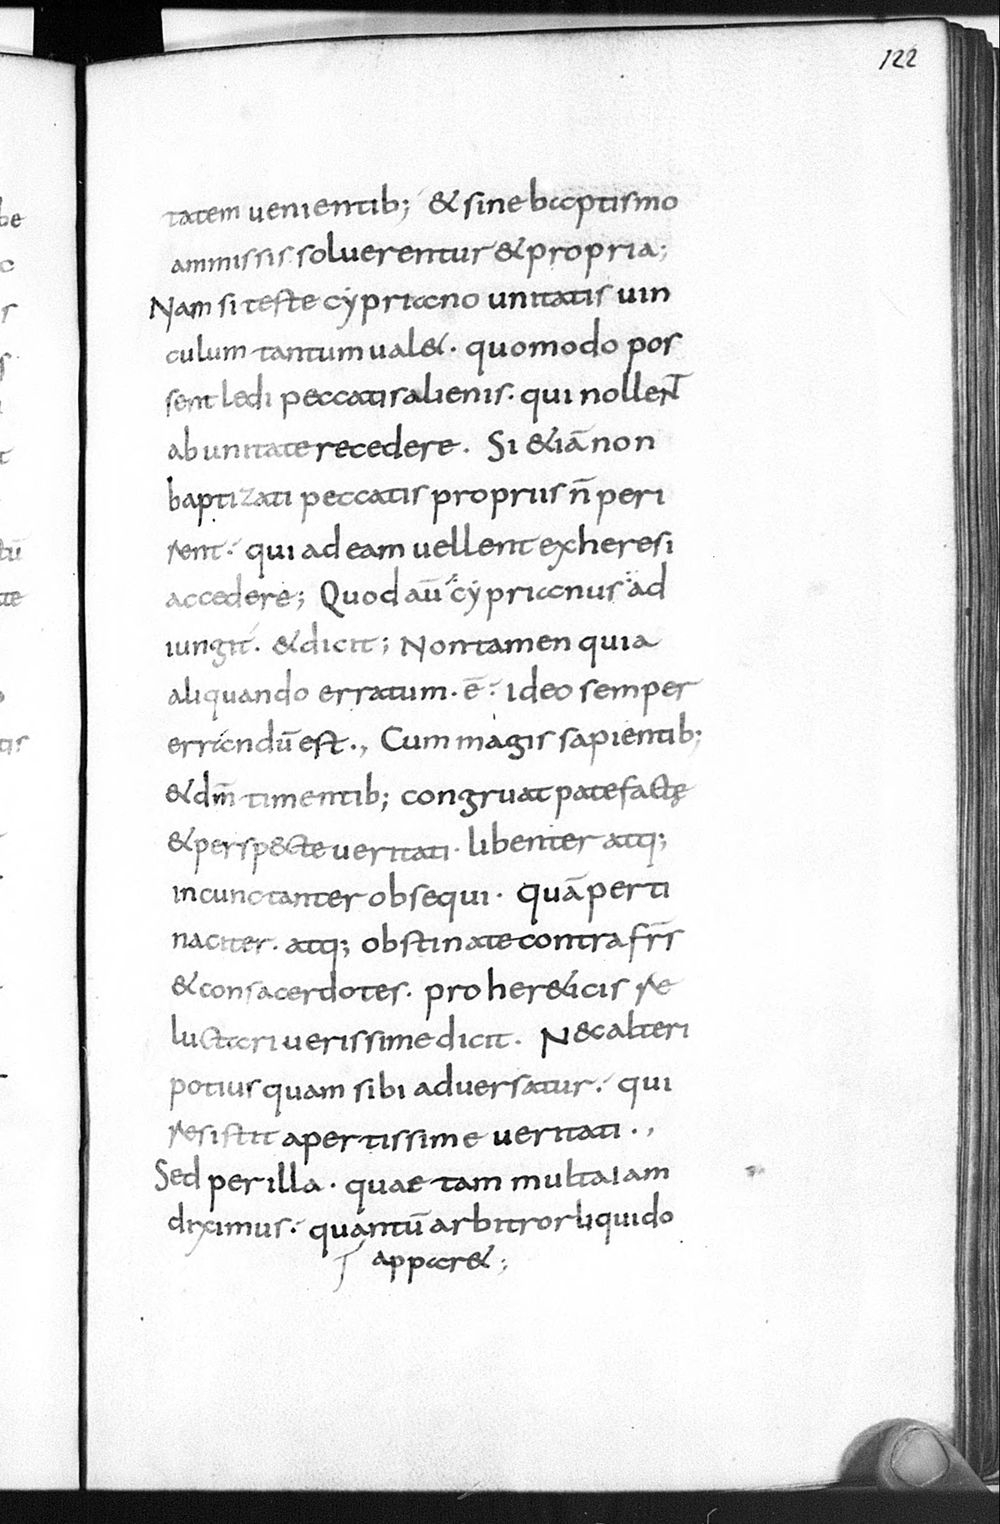 122
tatem uenientib; & sine baptismo
ammissis soluerentur & propria;
Nam si teste cypriano unitatis uin
culum tantum ual&. quomodo pos
sent ledi peccatis alienis. qui nollent
ab unitate recedere. Si &iā non
baptizati peccatis propriis n̄ peri
rent. qui ad eam uellent ex heresi
accedere; Quod aū cyprianus ad
iungit. & dicit; Non tamen quia
aliquando erratum. ē. ideo semper
errandū est., Cum magis sapientib;
& dm̄ timentib; congruat patefactę
& persp&cte ueritati. libenter atq;
incunctanter obsequi. quā perti
naciter. atq; obstinate contra fr̄s
& consacerdotes. pro her&icis re
luctari uerissime dicit. N&c alteri
potius quam sibi aduersatur. qui
resistit apertissime ueritati.,
Sed per illa. quae tam multa iam
diximus. quantū arbitror liquido
appar&;